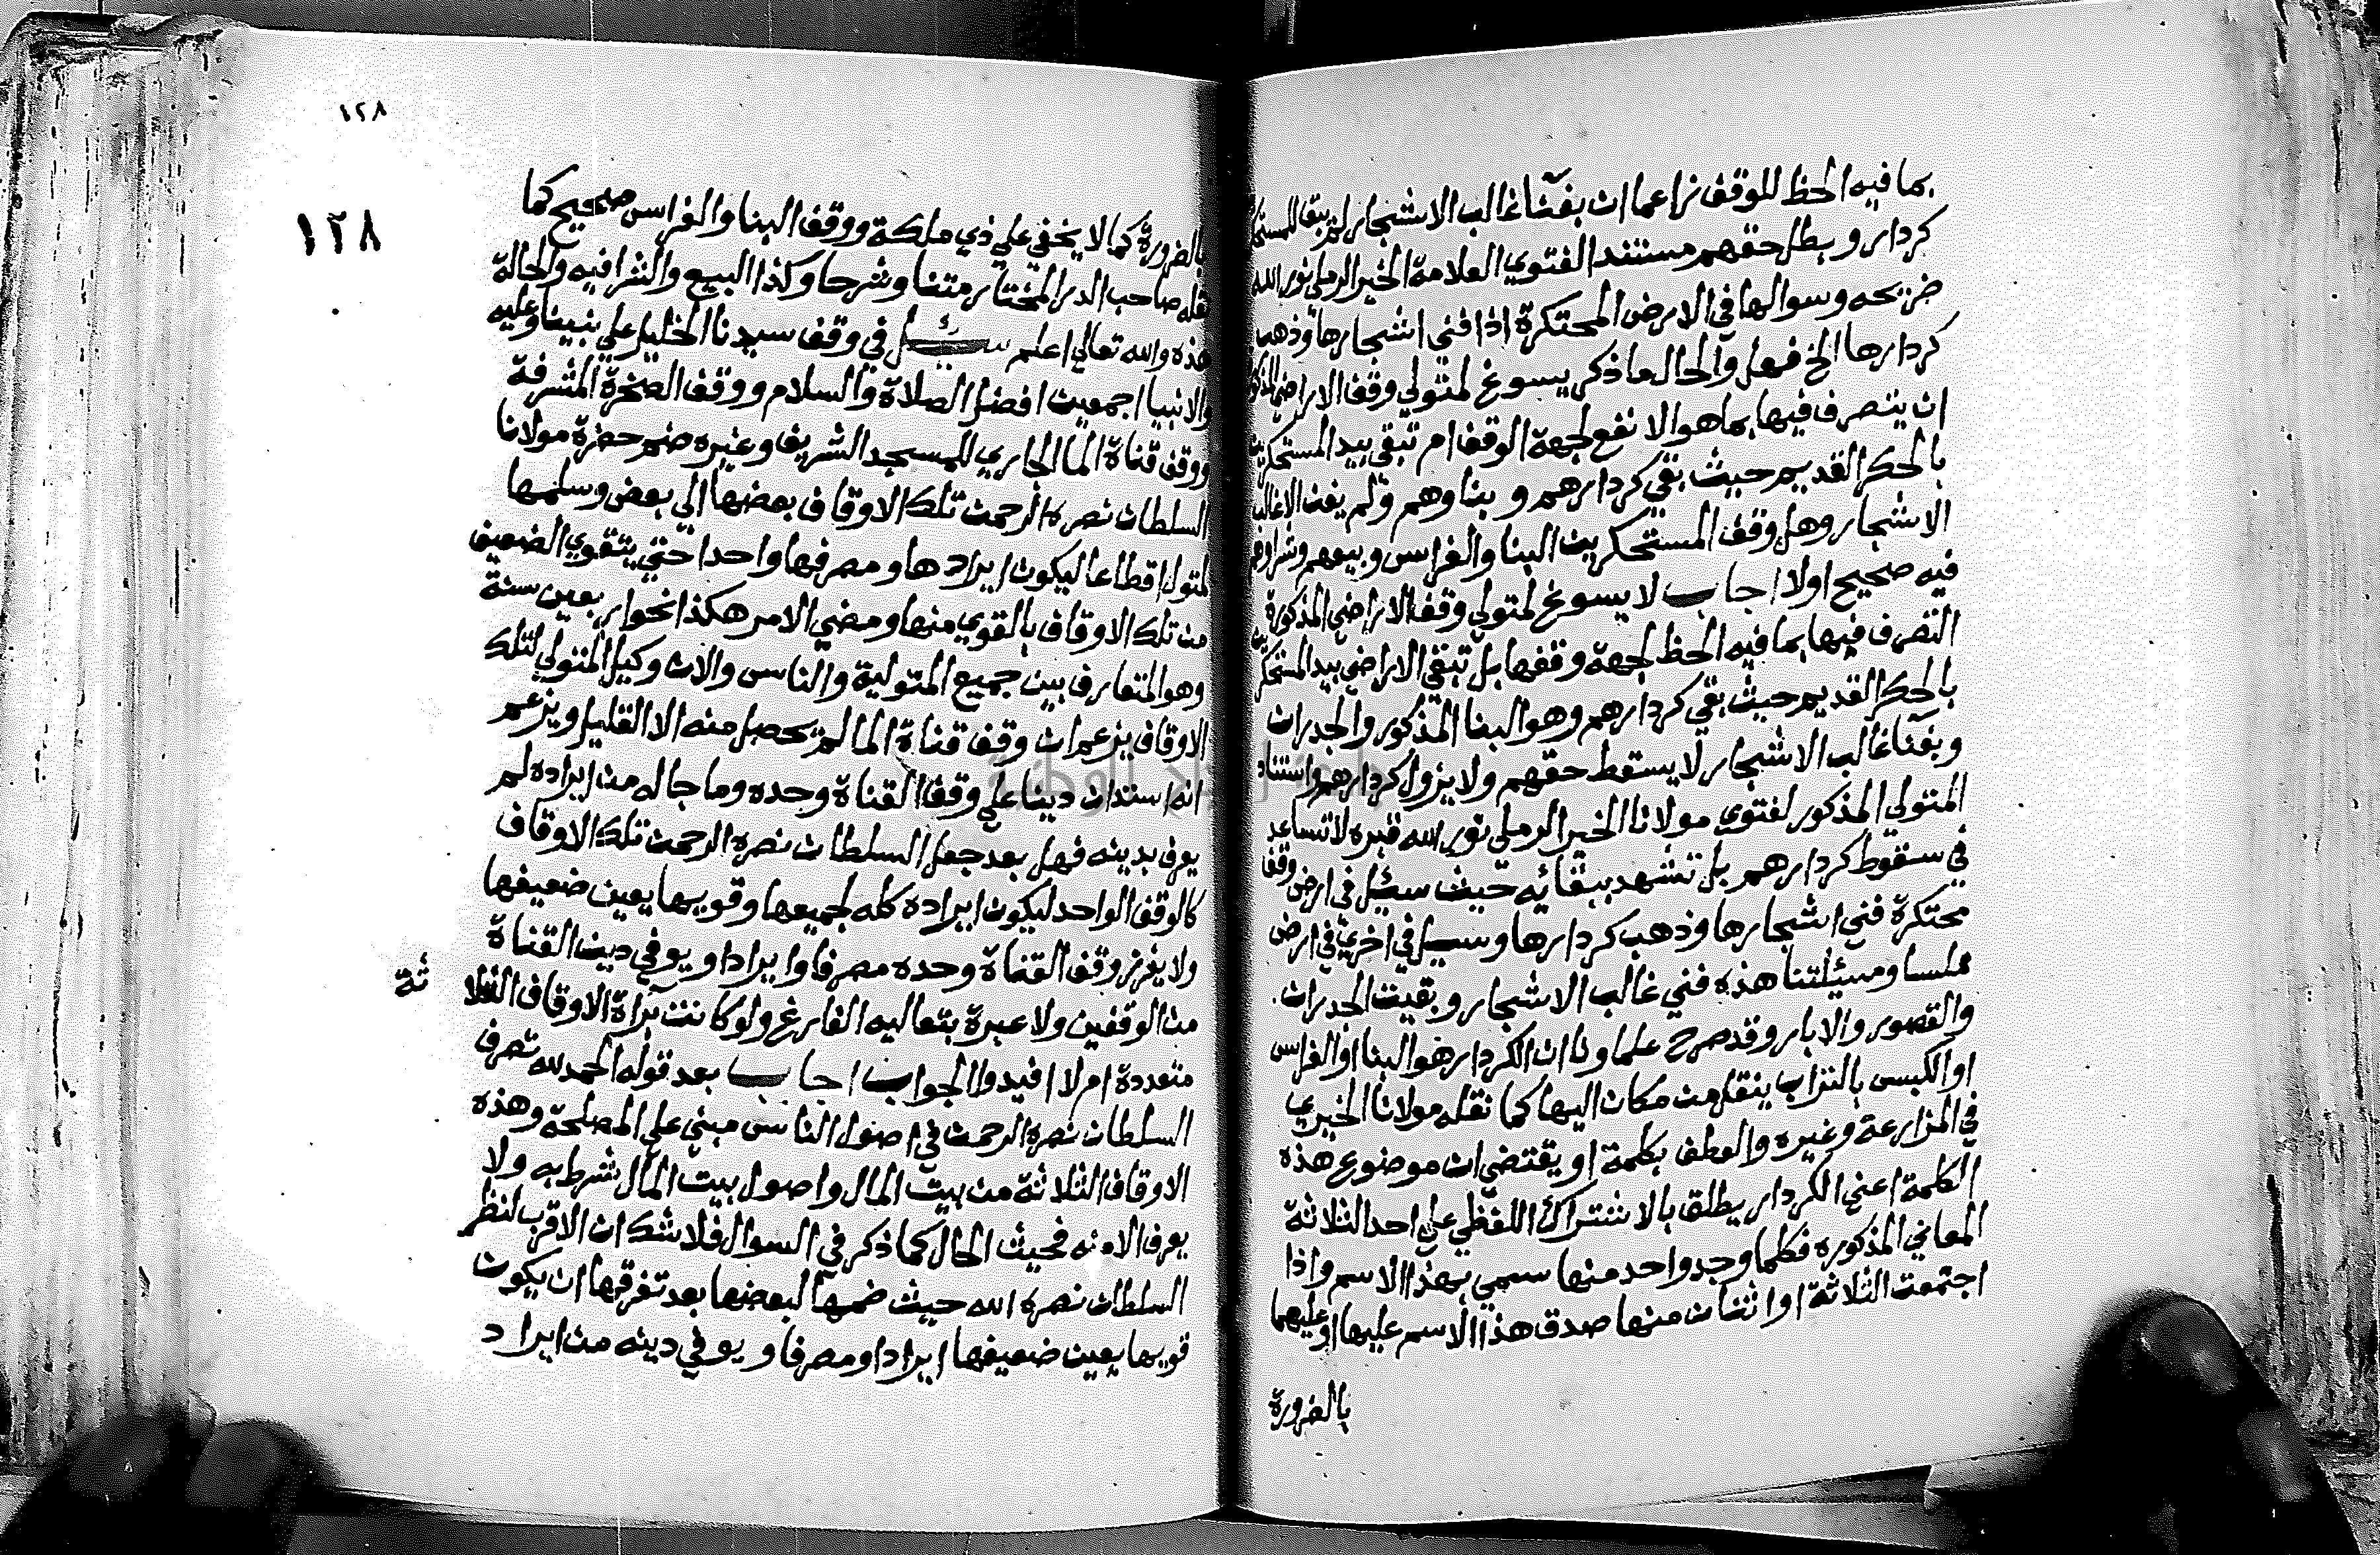 بما فيه الحظ للوقف زاعما ان بفنا غالب الاشجار لم يبقا للمستحكر
كردار وبطل حقهم مستند الفتوي العلامة الخير الرملي نور الله
ضريحه وسوالها في الارض المحتكرة اذا فني اشجارها وذهب
كردارها الخ فهل والحال ما ذكر يسوغ لمتولي وقف الاراضي المذكورة
ان يتصرف فيها بما هو الانفع لجهة الوقف ام تبقي بيد المستحكرين
بالحكر القديم حيث بقي كردارهم وبناوهم ولم يفن الا غالب
الاشجار وهل وقف المستحكرين البنا والغراس وبيعهم وشراوهم
فيه صحيح اولا اجاب لا يسوغ لمتولي وقف الاراضي المذكورة
التصرف فيها بما فيه الحظ لجهة وقفها بل تبقي الاراضي بيد المستحكرين
بالحكر القديم حيث بقي كردارهم وهو البنا المذكور والجدران
وبفنا غالب الاشجار لا يسقط حقهم ولا يزول كردارهم واستناد
المتولي المذكور لفتوي مولانا الخير الرملي نور الله قبره لا تساعد
في سقوط كردارهم بل تشهد ببقائه حيث سئل في ارض وقف
محتكرة فني اشجارها وذهب كردارها وسيل في اخري في ارض
ملسا ومسئلتنا هذه فني غالب الاشجار وبقيت الجدران
والقصور والابار وقد صرح علماونا ان الكردار هو البنا او الغراس
او الكبس بالتراب ينقل من مكان اليها كما نقله مولانا الخيري
في المزارعة وغيره والعطف بكلمة او يقتضي ان موضوع هذه
الكلمة اعني الكردار يطلق بالاشتراك اللفظي علي احد الثلاثة
المعاني المذكوره فكلما وجد واحد منها سمي بهذا الاسم واذا
اجتمعت الثلاثة او اثنان منها صدق هذا الاسم عليها او عليهما
بالضرورة
١٢٨
١٢٨
بالضرورة كما لا يخفي علي ذي ملكة ووقف البنا والغراس صحيح كما
نقله صاحب الدر المختار متنا وشرحا وكذا البيع والشرا فيه والحالة
هذه والله تعالي اعلم سئل في وقف سيدنا الخليل علي نبينا وعليه
والانبيا اجمعين افضل الصلاة والسلام ووقف الصخرة المشرفة
ووقف قناة الما الجاري للمسجد الشريف وغيره ضم حضرة مولانا
السلطان نصره الرحمن تلك الاوقاف بعضها الي بعض وسلمها
لمتول اقطاعا ليكون ايرادها ومصرفها واحدا حتي يتقوي الضعيف
من تلك الاوقاف بالقوي منها ومضي الامر هكذا نحو اربعين سنة
وهو المتعارف بين جميع المتولية والناس والان وكيل المتولي لتلك
الاوقاف يزعم ان وقف قناة الما لم يحصل منه الا القليل ويزعم
انه استدان دينا علي وقف القناة وحده وما جا له من ايراده لم
يوف بدينه فهل بعد جعل السلطان نصره الرحمن تلك الاوقاف
كالوقف الواحد ليكون ايراده كله لجميعها وقويها يعين ضعيفها
ولا يفرز وقف القناة وحده مصرفا وايرادا ويوفي دين القناة
من الوقفين ولا عبرة بتعاليه الفارغ ولو كانت براة الاوقاف الثلا ثة
متعددة ام لا افيدوا الجواب اجاب بعد قوله الحمد لله تصرف
السلطان نصره الرحمن في اصول الناس مبني علي المصلحة وهذه
الاوقاف الثلاثة من بيت المال واصول بيت المال شرط به ولا
يعرف الا منه فحيث الحال كما ذكر في السوال فلا شك ان الاقرب لنظر
السلطان نصره الله حيث ضمها لبعضها بعد تفرقها ان يكون
قويها يعين ضعيفها ايرادا ومصرفا ويوفي دينه من ايراد